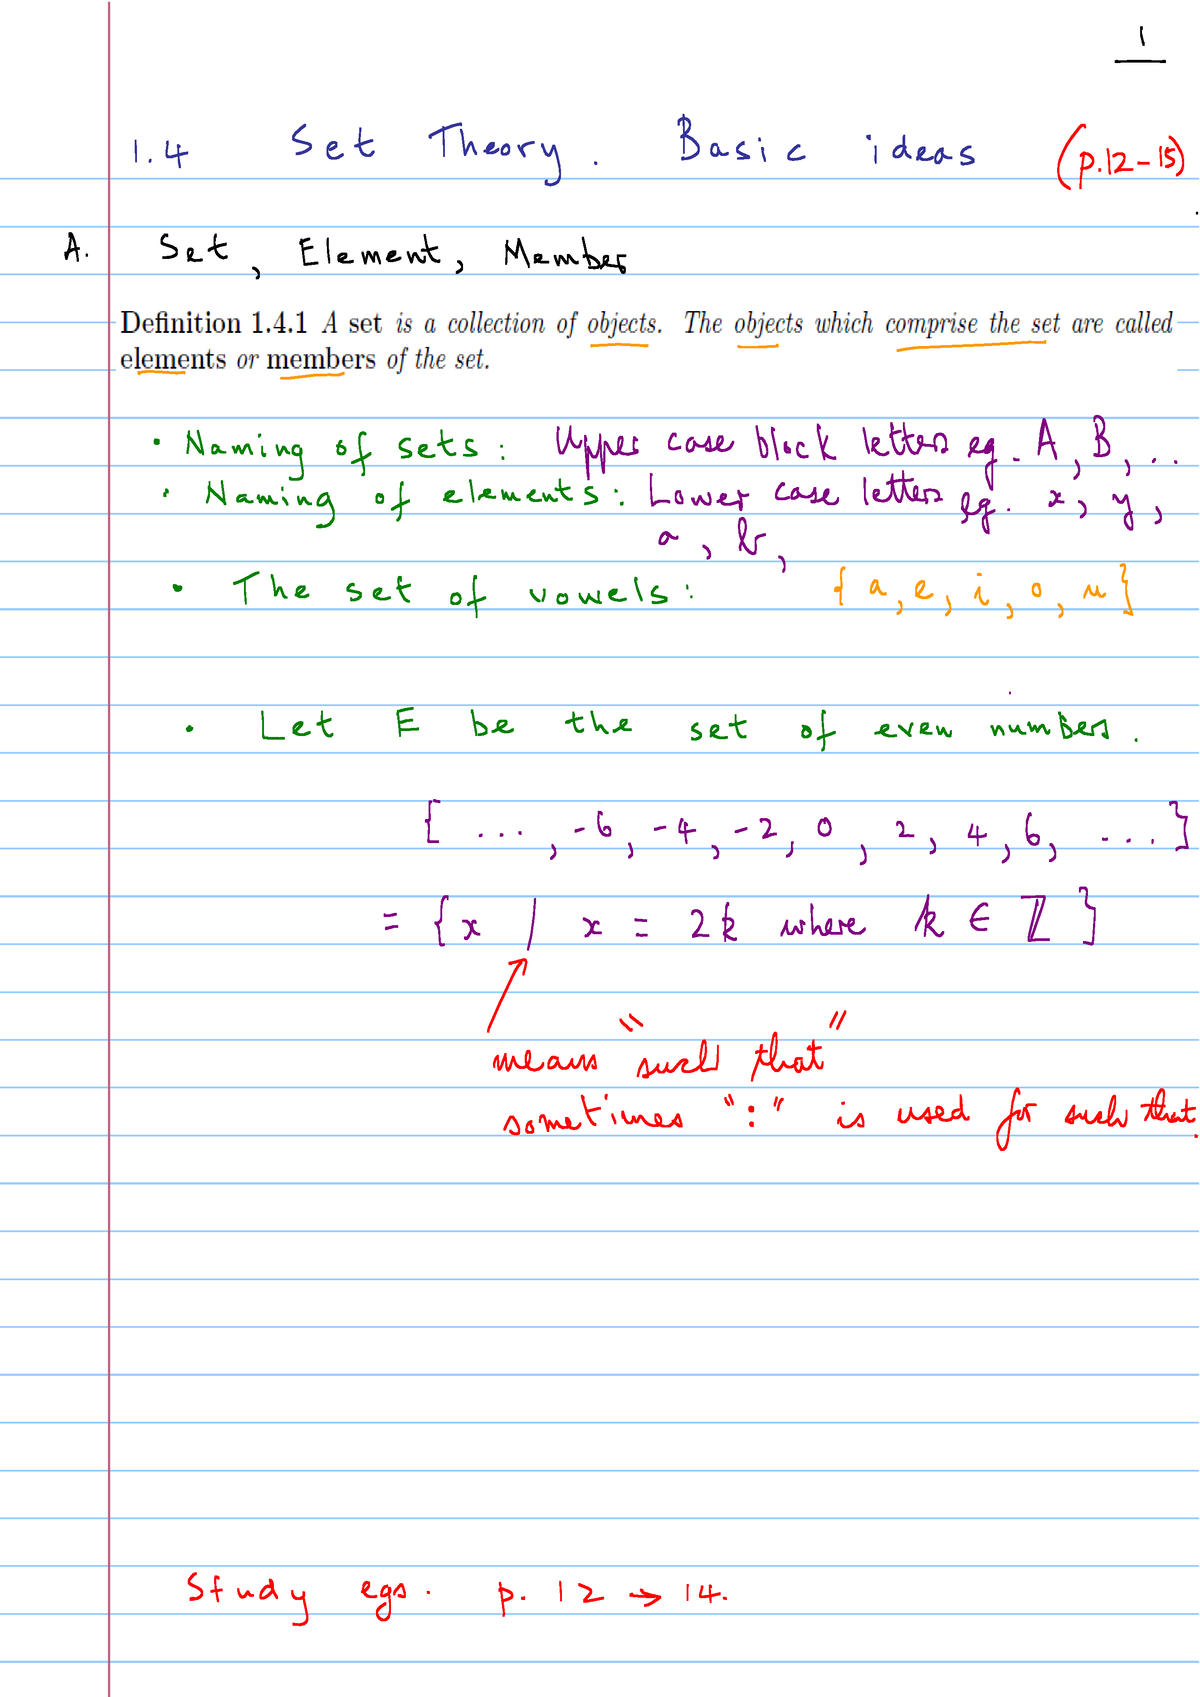 1
1.4 Set Theory. Basic ideas (p.12-15)
A. Set, Element, Member
Definition 1.4.1 A set is a collection of objects. The objects which comprise the set are called
elements or members of the set.
• Naming of sets: Upper case block letters eg. A, B, ..
• Naming of elements: Lower case letters eg. x, y,
a, b,
• The set of vowels: {a, e, i, o, u}
• Let E be the set of even numbers.
{ ..., -6, -4, -2, 0, 2, 4, 6, ....}
= {x | x = 2k where k ∈ ℤ}
means "such that"
sometimes ":" is used for such that.
Study egs. p. 12 → 14.